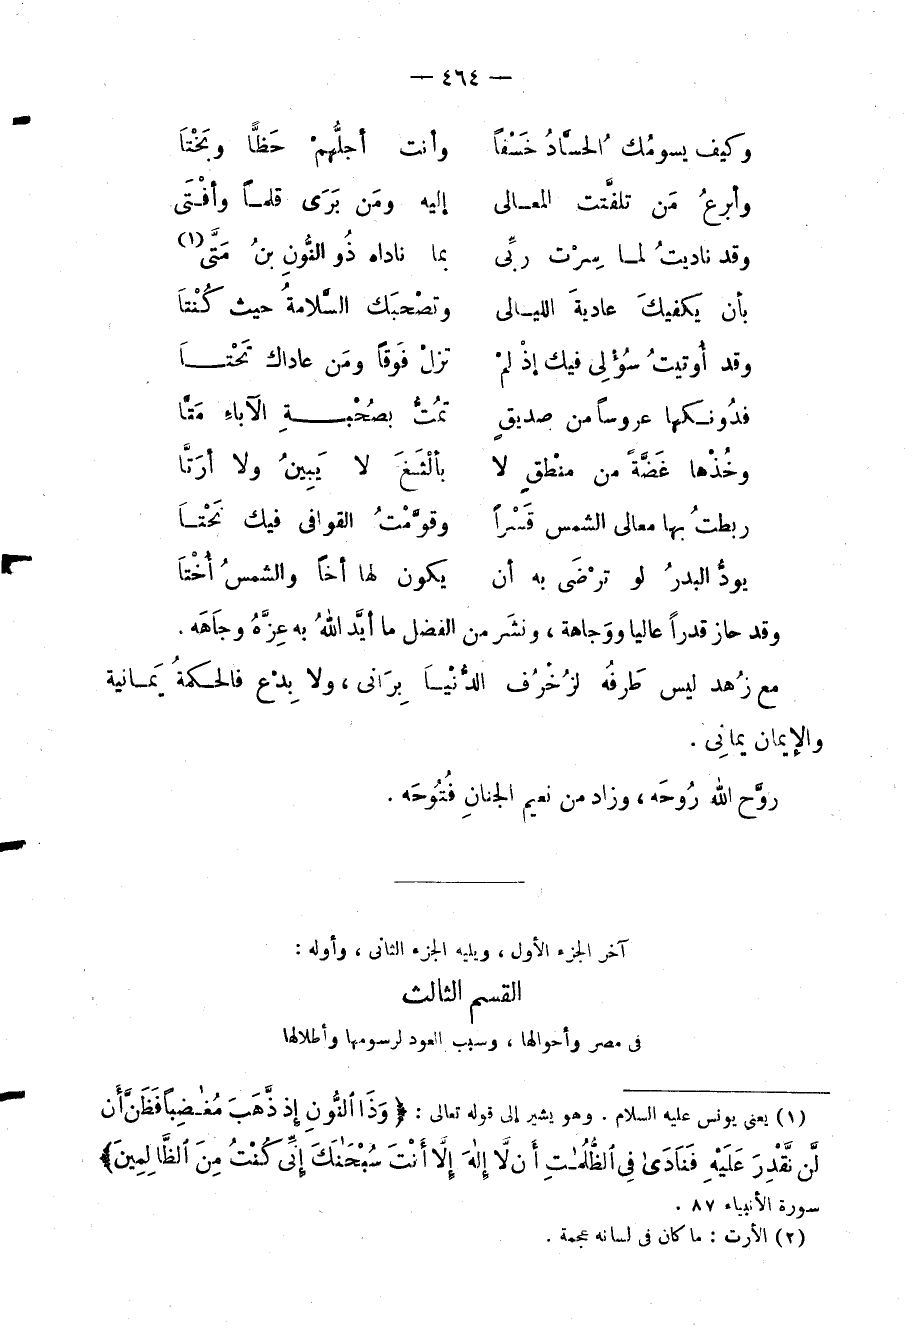 — ٤٦٤ —
وكيف يسومُك الحسَّادُ خَسْفاً وأنت أجلُّهمْ حَظًّا وبَخْتاَ
وأبرعُ مَن تلفَّتت المعـالى إليه ومَن بَرَى قلمـاً وأفْـتَى
وقد ناديتُ لمـا سِرْت ربِّى بما ناداه ذُو النُّونِ بنُ مَتَّى(١)
بأن يَكفيكَ عاديةَ الليـالى وتصْحبَك السَّلامةُ حيث كُنْتاَ
وقد أُوتيتُ سُؤْلِى فيك إذْ لمْ تزلْ فَوقاً ومَن عاداك تَحْتـــاَ
فدُونـكها عروساً من صديقٍ تَمُتُّ بصُحْبـــةِ الآباءِ مَتًّا
وخُذْها غَضَّةً من منْطقٍ لا بألْثَـغَ لا يَبِينُ ولا أرَتَّا
ربطتُ بها معالى الشمس قَسْراً وقوَّمْتُ القوافى فيك نَحْتـاَ
يودُّ البدرُ لو ترْضَى به أن يكون لها أخاً والشمسُ أُخْتاَ
وقد حاز قدراً عاليا ووَجاهة ، ونشَر من الفضل ما أيَّد اللهُ به عِزَّهُ وجاهَه .
مع زُهد ليس طَرفُه لزُخْرُف الدُّنْيـاَ بِرَانى ، ولا بِدْع فالحـكمةُ يَمـانية
والإيمان يمانِى .
روَّح الله رُوحَه ، وزاد من نعيم الجنانِ فُتُوحَه .
آخر الجزء الأول ، ويليه الجزء الثانى ، وأوله :
القسم الثالث
فى مصر وأحوالها ، وسبب العود لرسومها وأطلالها
(١) يعنى يونس عليه السلام . وهو يشير إلى قوله تعالى : ﴿ وَذَا ٱلنُّونِ إِذ ذَّهَبَ مُغَٰضِبًا فَظَنَّ أَن
لَّن نَّقْدِرَ عَلَيْهِ فَنَادَىٰ فِى ٱلظُّلُمَٰتِ أَن لَّا إِلَٰهَ إِلَّا أَنْتَ سُبْحَٰنَكَ إِنِّى كُنْتُ مِنَ ٱلظَّالِمِينَ﴾
سورة الأنبياء ٨٧ .
(٢) الأرت : ما كان فى لسانه عجمة .